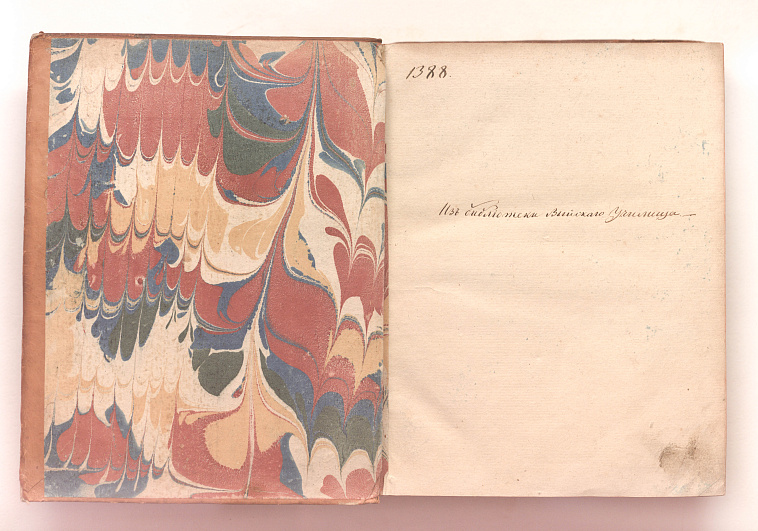 1388.
Изъ библіотеки Выйскаго Училища